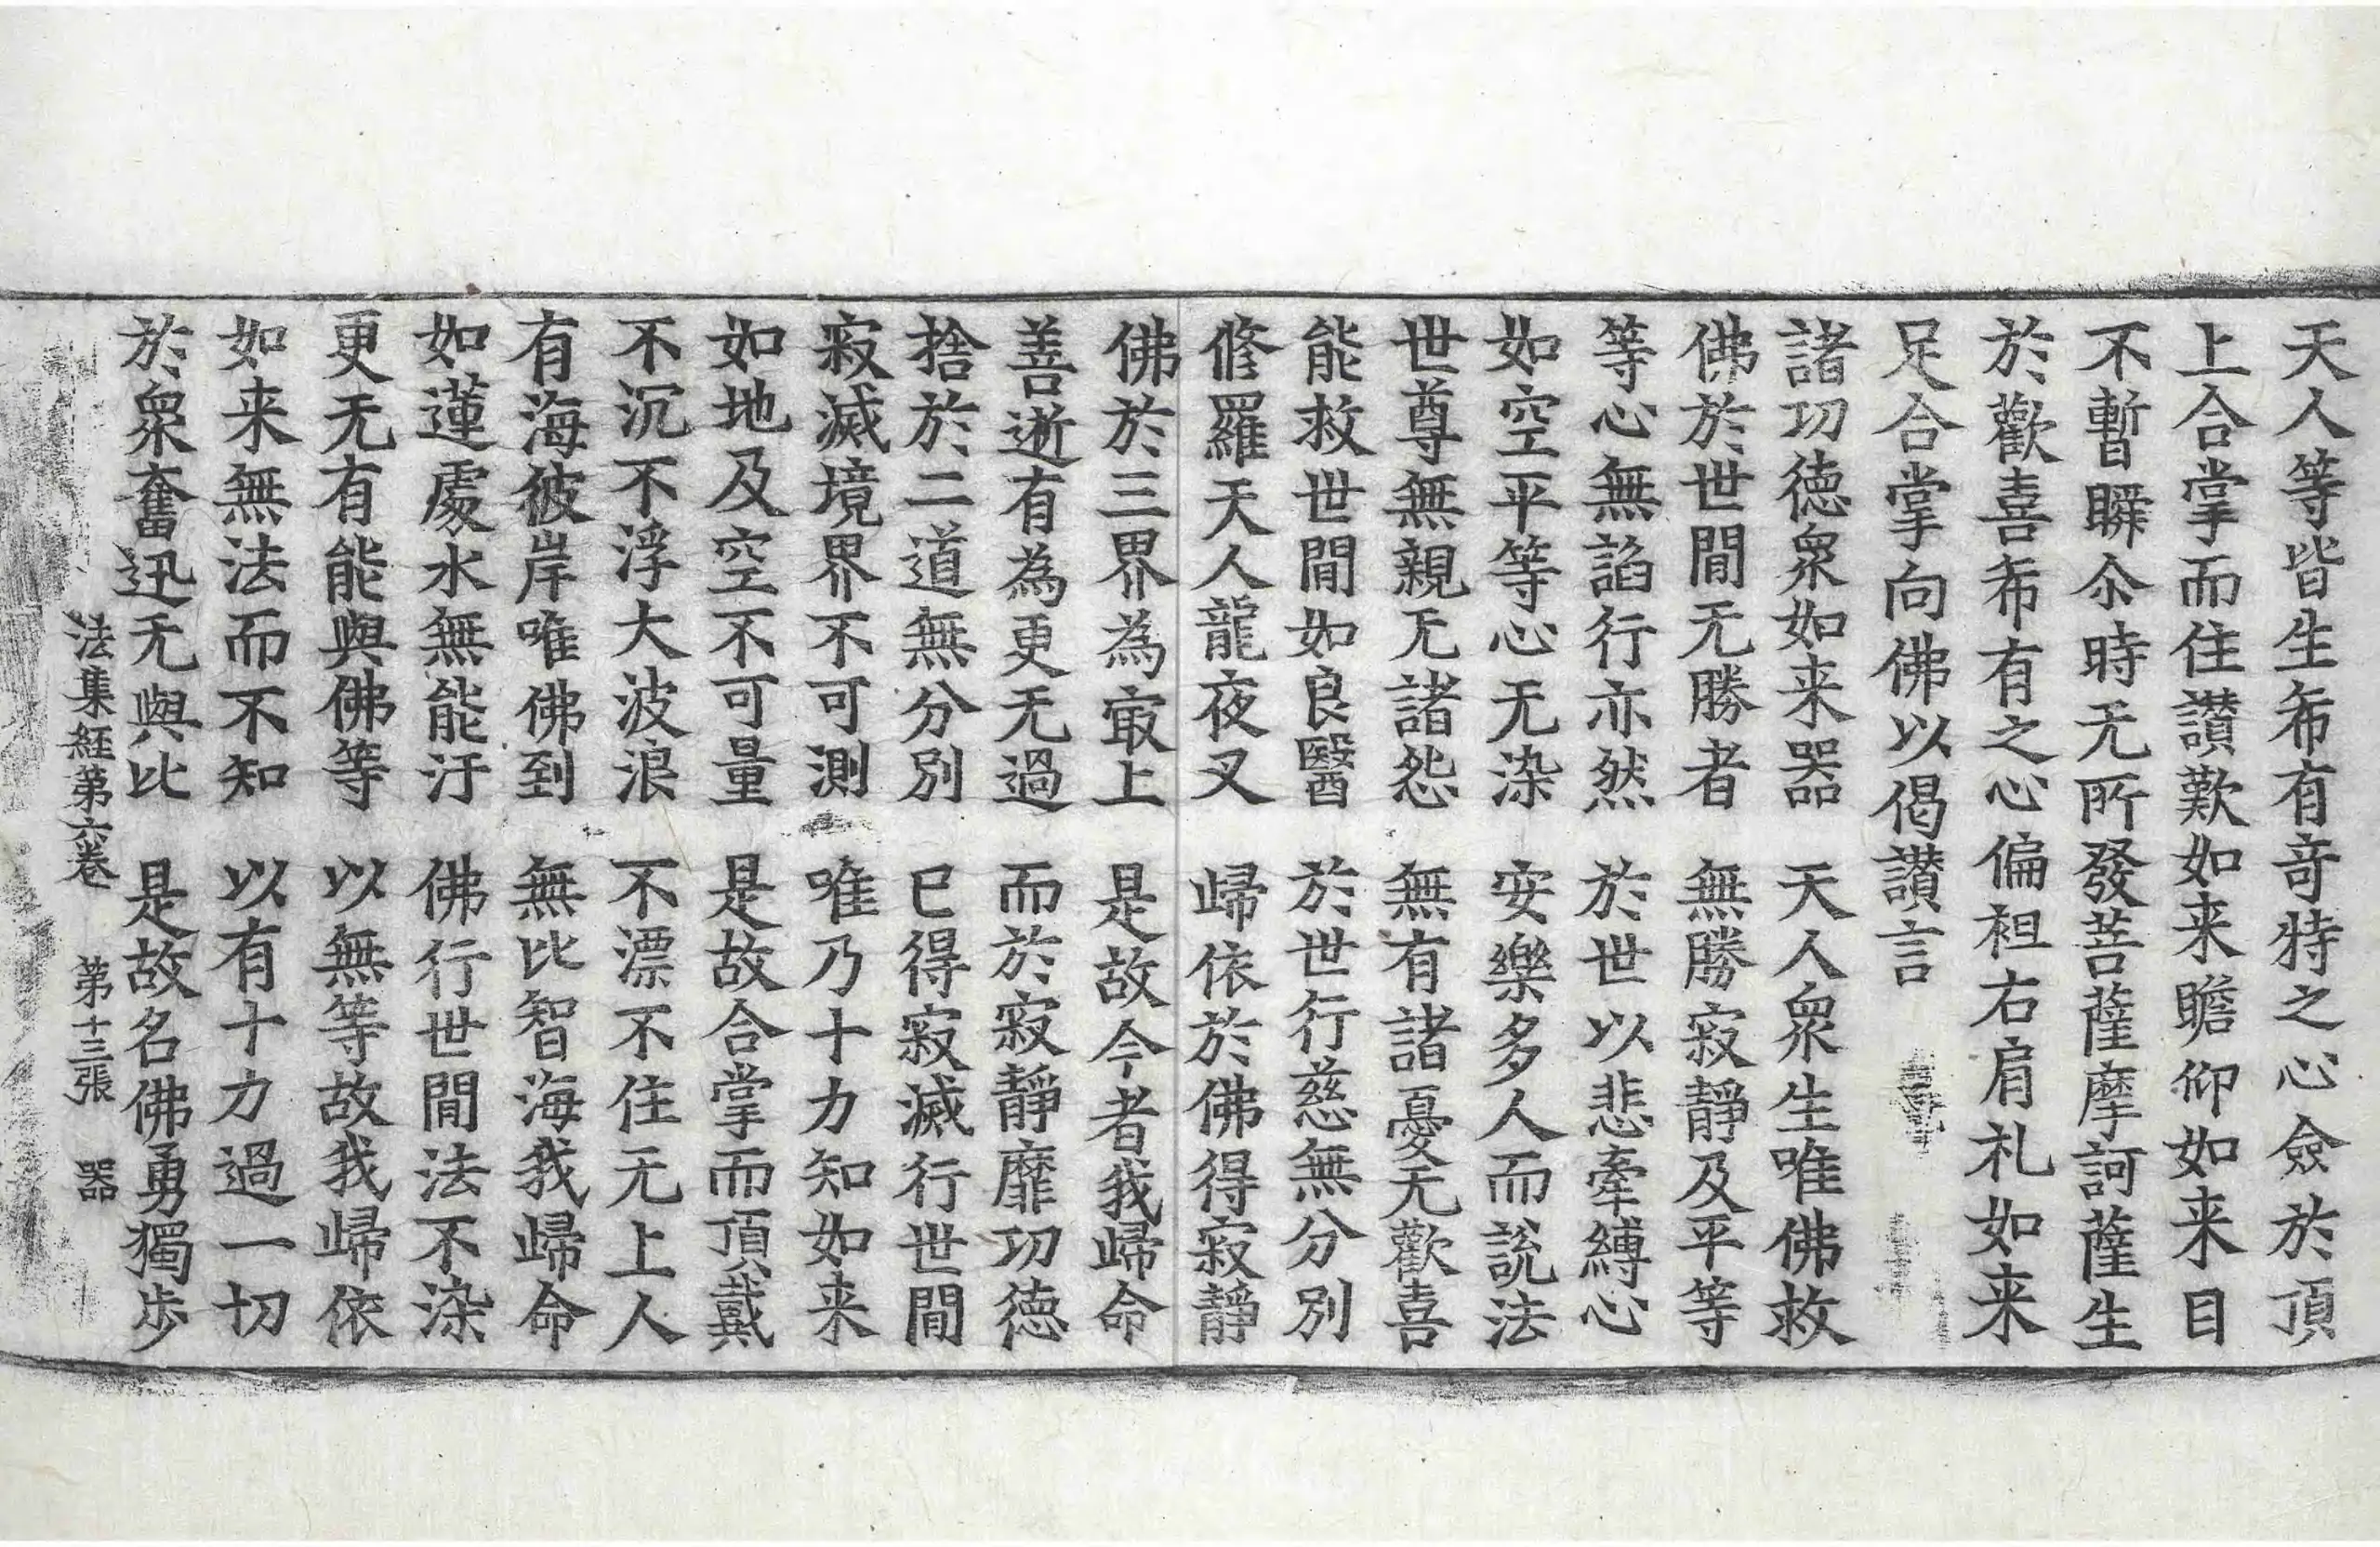 天人等皆生希有奇特之心僉於頂
上合掌而住讃歎如来瞻仰如来目
不暫瞬尒時无所發菩薩摩訶薩生
於歡喜希有之心偏袒右肩礼如来
足合掌向佛以偈讃言
諸功徳衆如来器　天人衆生唯佛救
佛於世間无勝者　無勝寂靜及平等
等心無諂行亦然　於世以悲牽縛心
如空平等心无染　安樂多人而說法
世尊無親无諸怨　無有諸憂无歡喜
能救世間如良醫　於世行慈無分別
脩羅天人龍夜叉　歸依於佛得寂靜
佛於三界為㝡上　是故今者我歸命
善逝有為更无過　而於寂靜靡功徳
捨於二道無分別　已得寂滅行世間
寂滅境界不可測　唯乃十力知如来
如地及空不可量　是故合掌而頂戴
不沉不浮大波浪　不漂不住无上人
有海彼岸唯佛到　無比智海我歸命
如蓮處水無能汙　佛行世間法不染
更无有能與佛等　以無等故我歸依
如来無法而不知　以有十力過一切
於衆奮迅无與比　是故名佛勇獨步
法集経第六卷　第十三張　器